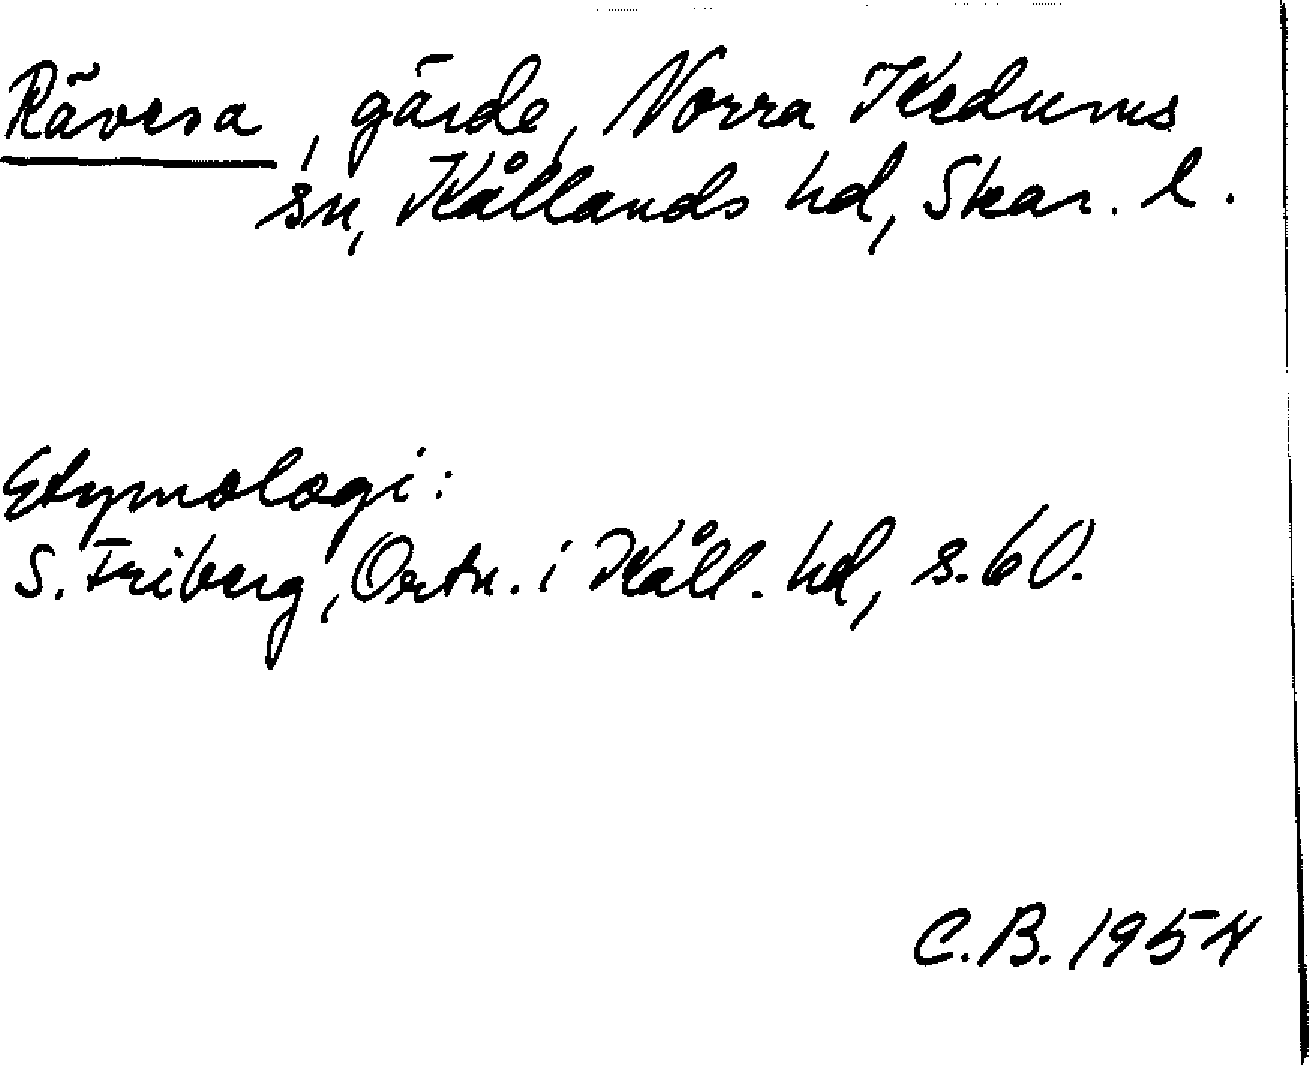 Rävesa, gärde, Norra Kedums
sn, Kållands hd, Skar. l.
Etymologi:
S. Friberg, Ortn. i Kåll. hd, s. 60.
C.B. 1954